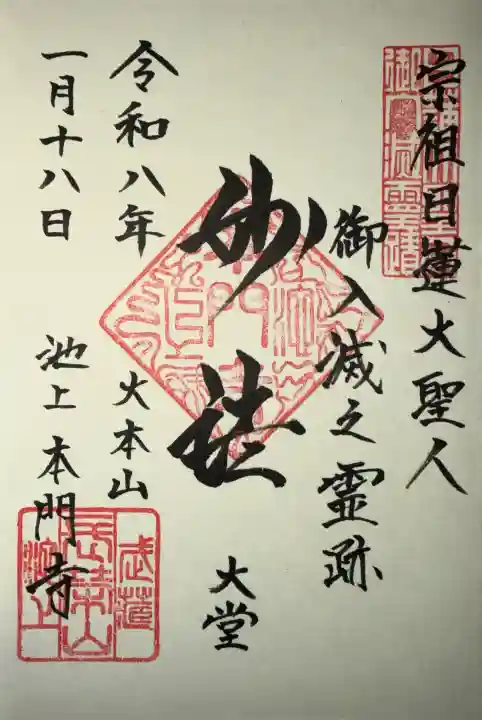 宗祖日蓮大聖人
御入滅之霊跡
妙法
大堂
令和八年
一月十八日
大本山
池上本門寺